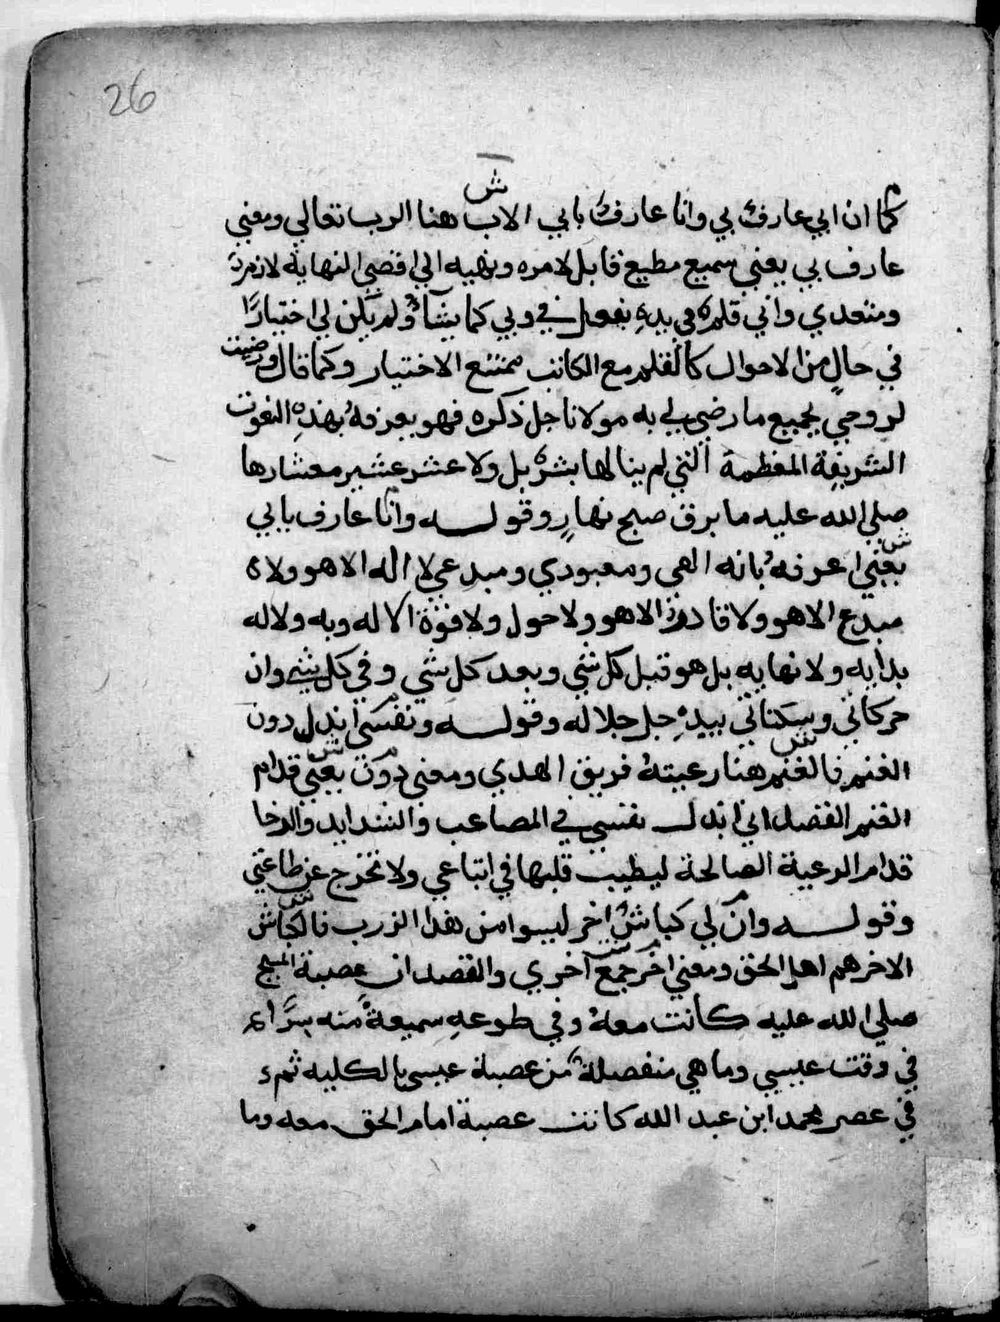 26
ش
كما ان ابي عارف بي وانا عارف بابي الاب هنا الرب تعالي ومعني
عارف بي يعني سميع مطيع قابل لامره ونهيه الي اقصي النهاية لازمة
ومتعدي واني قلمه في يده يفعل في وبي كما يشاء ولم يكن لي اختيارًا
في حالٍ من الاحوال كالقلم مع الكاتب ممتنع الاختيار وكما قال ورضيت
لروحي بجميع ما رضي لي به مولانا جل ذكره فهو يعرفه بهذه النعوت
الشريفة المعظمة التي لم ينالها بشره بل ولا عشر عشير معشارها
صلي الله عليه ما برق صبح نهارٍ وقولـــه وانا عارف بابي
ش
يعني اعرفه بانه الهي ومعبودي ومبدعي لا اله الا هو ولاه
مبدع الا هو ولا قادر الا هو ولا حول ولا قوة الا له وبه ولا له
بدايه ولا نهايه بل هو قبل كل شي وبعد كل شي وفي كل شي وان
حركاتي وسكناتي بيده جل جلاله وقولـــه ونفسي ابدل دون
ش
الغنم فالغنم هنا رعيته فريق الهدي ومعني دون يعني قدام
ش
الغنم القصد اني ابدل نفسي في المصاعب والشدايد والرخا
قدام الرعية الصالحة ليطيب قلبها في اتباعي ولا تخرج عن طاعتي
وقولـــه وان لي كباش اخر ليسوا من هذا الزرب فالكباش
ش
الاخر هم اهل الحق ومعني اخر جمع اخري والقصد ان عصبة المسيح
ش
صلي الله عليه كانت معه وفي طوعه سميعة منه سرًا
في وقت عيسي وما هي منفصلة من عصبة عيسي بالكليه ثم
في عصر محمد ابن عبد الله كانت عصبة امام الحق معه وما